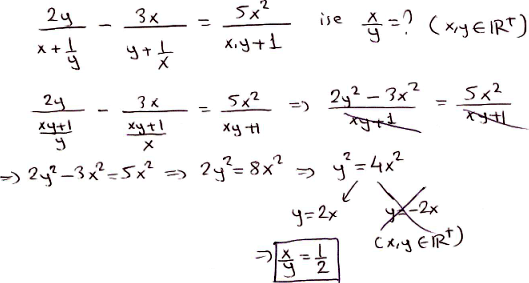 2y/(x+1/y) - 3x/(y+1/x) = 5x²/(x.y+1) ise x/y=? (x,y∈IR⁺)
2y/((xy+1)/y) - 3x/((xy+1)/x) = 5x²/(xy+1) => (2y²-3x²)/(xy+1) = 5x²/(xy+1)
=> 2y²-3x²=5x² => 2y²=8x² => y²=4x²
y=2x y=-2x
(x,y∈IR⁺)
=> x/y = 1/2